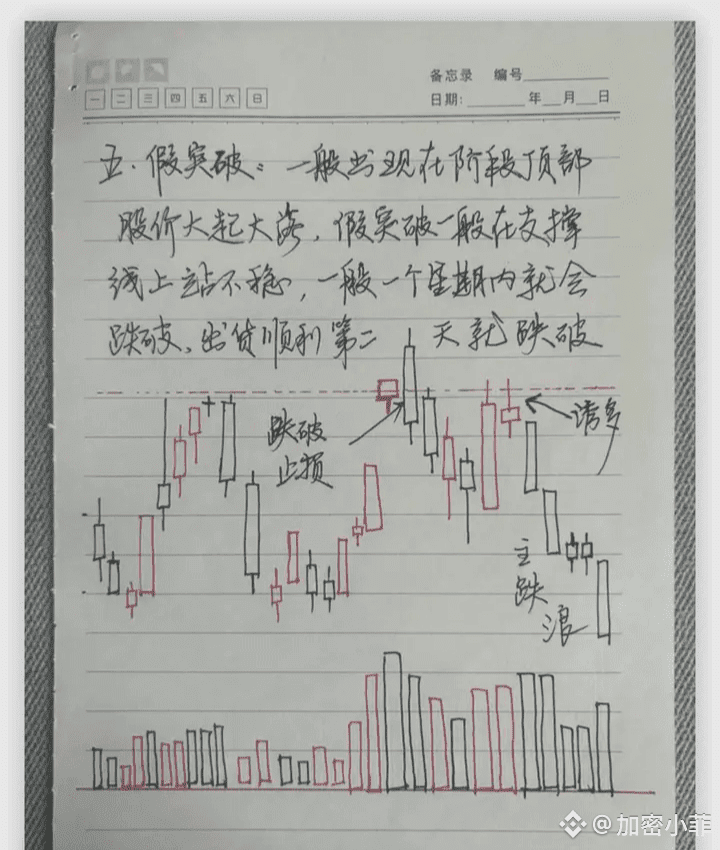 备忘录 编号
一 二 三 四 五 六 日
日期: 年 月 日
五.假突破：一般出现在阶段顶部
股价大起大落，假突破一般在支撑
线上站不稳，一般一个星期内就会
跌破、出货顺利第二 天就跌破
跌破
止损
诱多
主
跌
浪
@加密小菲